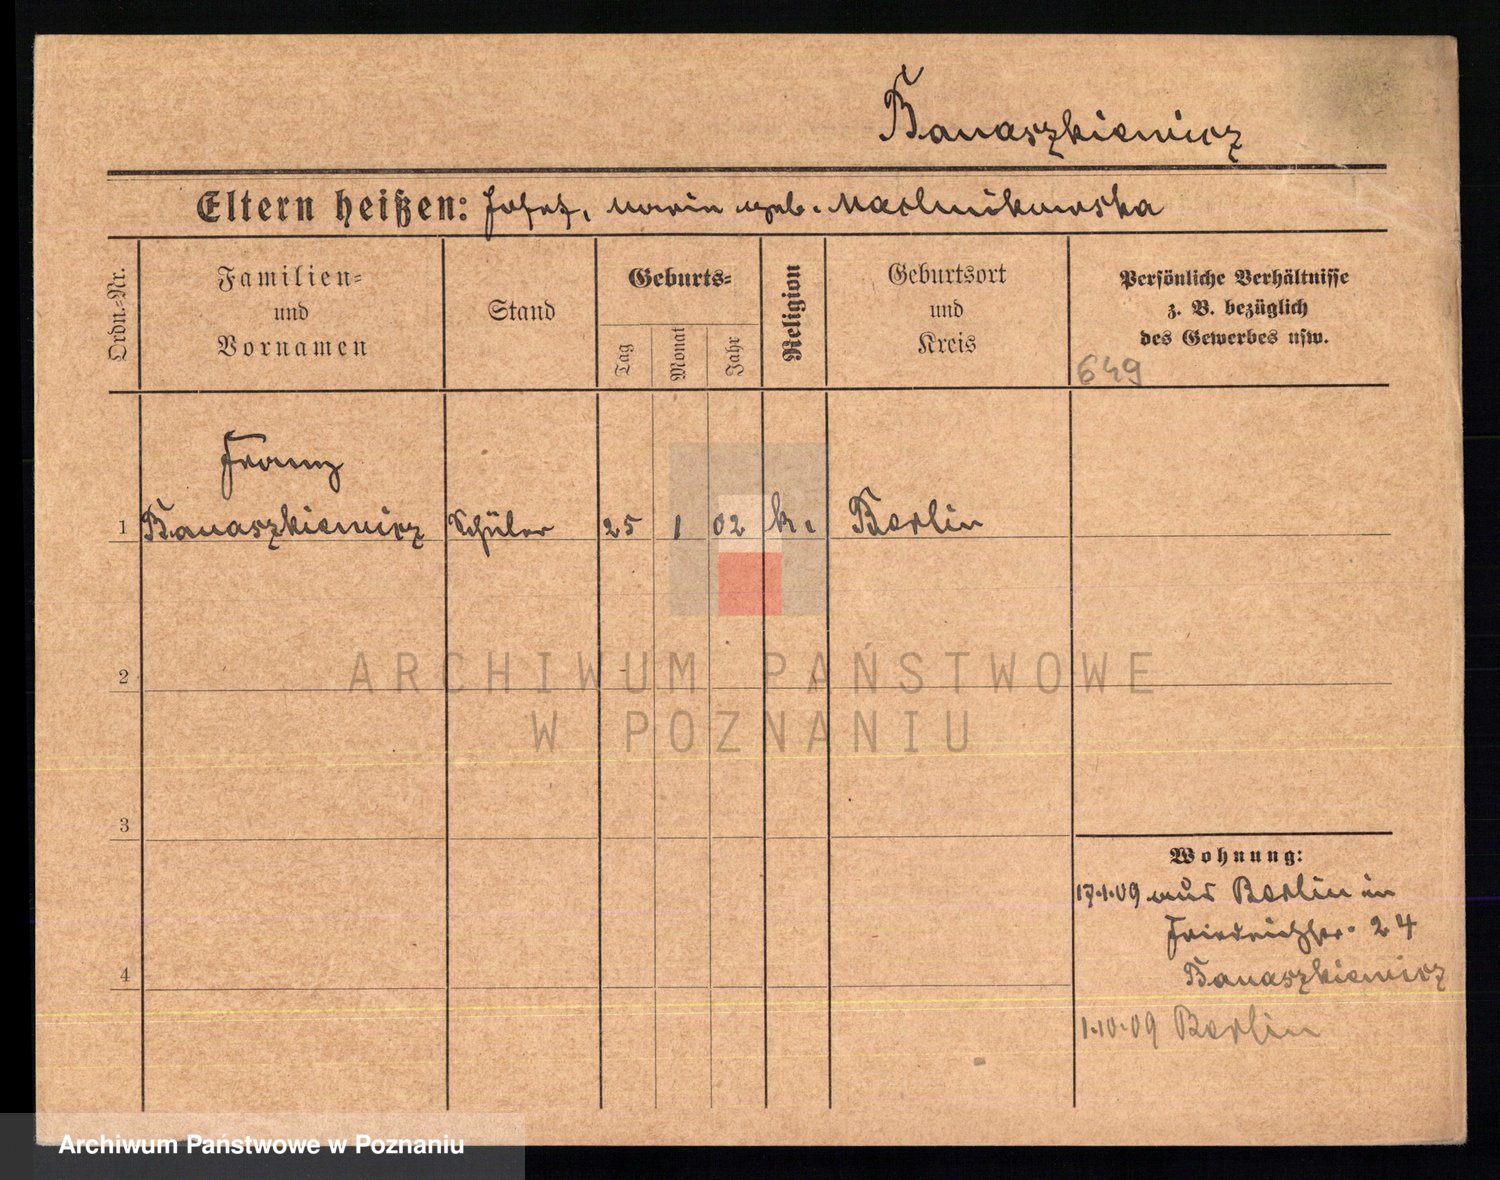 Banaszkiewicz
Eltern heißen: Josef, Maria geb.
Ordn.=Nr.
Familien=
und
Vornamen
Stand
Geburts=
Tag
Monat
Jahr
Religion
Geburtsort
und
Kreis
Persönliche Verhältnisse
z. B. bezüglich
des Gewerbes usw.
649
Franz
1 Banaszkiewicz Schüler 25 1 02 k. Berlin
2
ARCHIWUM PAŃSTWOWE
W POZNANIU
3
Wohnung:
17.1.09 aus Berlin in
Friedrichstr. 24
Banaszkiewicz
4
1.10.09 Berlin
Archiwum Państwowe w Poznaniu